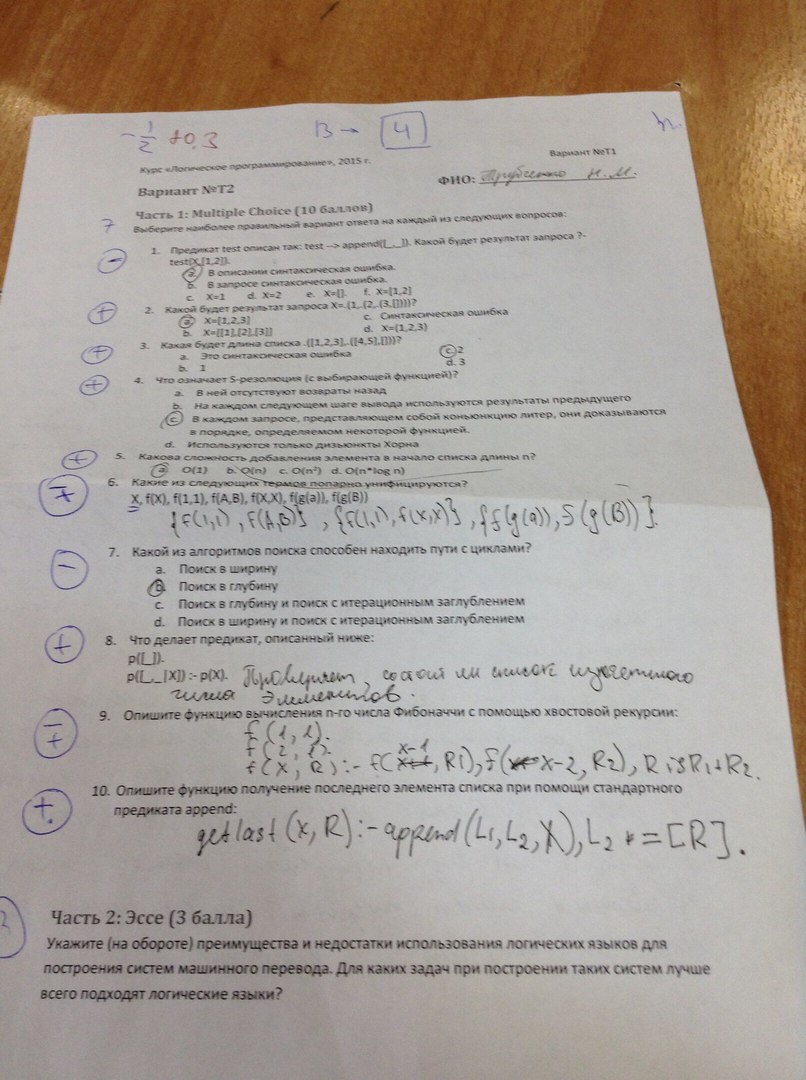 -1/2 +0,3 B → 4
Курс «Логическое программирование», 2015 г. Вариант №Т1
Вариант №Т2 ФИО: Трубченко Н.М.
Часть 1: Multiple Choice (10 баллов)
7 Выберите наиболее правильный вариант ответа на каждый из следующих вопросов:
- 1. Предикат test описан так: test --> append([_,_]). Какой будет результат запроса ?-
test(X,[1,2]).
a. В описании синтаксическая ошибка.
b. В запросе синтаксическая ошибка.
c. X=1 d. X=2 e. X=[]. f. X=[1,2]
+ 2. Какой будет результат запроса X=.(1,.(2,.(3,[])))?
a. X=[1,2,3] c. Синтаксическая ошибка
b. X=[[1],[2],[3]] d. X=(1,2,3)
+ 3. Какая будет длина списка .([1,2,3],.([4,5],[]))?
a. Это синтаксическая ошибка c. 2
b. 1 d. 3
+ 4. Что означает S-резолюция (с выбирающей функцией)?
a. В ней отсутствуют возвраты назад
b. На каждом следующем шаге вывода используются результаты предыдущего
c. В каждом запросе, представляющем собой коньюнкцию литер, они доказываются
в порядке, определяемом некоторой функцией.
d. Используются только дизьюнкты Хорна
+ 5. Какова сложность добавления элемента в начало списка длины n?
a. O(1) b. O(n) c. O(n²) d. O(n*log n)
+ 6. Какие из следующих термов попарно унифицируются?
X, f(X), f(1,1), f(A,B), f(X,X), f(g(a)), f(g(B))
{f(1,1), f(A,B)}, {f(1,1), f(X,X)}, {f(g(a)), f(g(B))}.
- 7. Какой из алгоритмов поиска способен находить пути с циклами?
a. Поиск в ширину
B. Поиск в глубину
c. Поиск в глубину и поиск с итерационным заглублением
d. Поиск в ширину и поиск с итерационным заглублением
+ 8. Что делает предикат, описанный ниже:
p([_]).
p([_,_|X]) :- p(X). Проверяет, состоит ли список из нечетного
числа элементов.
∓ 9. Опишите функцию вычисления n-го числа Фибоначчи с помощью хвостовой рекурсии:
f(1,1).
f(2,1).
f(X,R):-f(X-1,R1),f(X-2,R2),R is R1+R2.
+. 10. Опишите функцию получение последнего элемента списка при помощи стандартного
предиката append:
getlast(X,R):-append(L1,L2,X),L2=[R].
Часть 2: Эссе (3 балла)
Укажите (на обороте) преимущества и недостатки использования логических языков для
построения систем машинного перевода. Для каких задач при построении таких систем лучше
всего подходят логические языки?